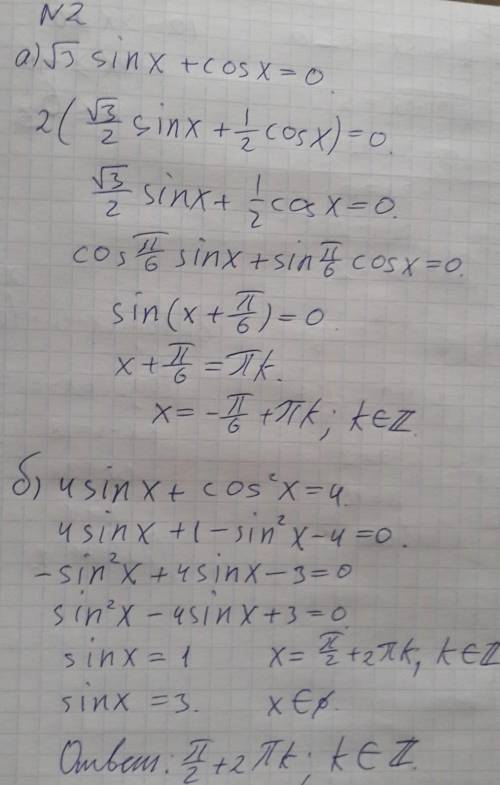 N2
а) √3 sinx + cosx = 0.
2(√3/2 sinx + 1/2 cosx) = 0.
√3/2 sinx + 1/2 cosx = 0.
cos π/6 sinx + sin π/6 cosx = 0.
sin(x + π/6) = 0.
x + π/6 = πk.
x = -π/6 + πk; k∈Z.
б) 4sinx + cos²x = 4.
4sinx + 1 - sin²x - 4 = 0.
-sin²x + 4sinx - 3 = 0
sin²x - 4sinx + 3 = 0.
sinx = 1 x = π/2 + 2πk, k∈Z
sinx = 3. x∈∅.
Ответ: π/2 + 2πk; k∈Z.